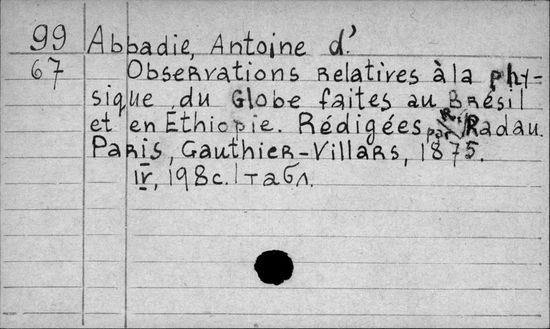 99 Abbadie, Antoine d'
67 Observations relatives à la phy-
sique du Globe faites au Brésil
et en Éthiopie. Rédigées par R. Radau.
Paris, Gauthier-Villars, 1875.
IV, 198 c. 1 табл.